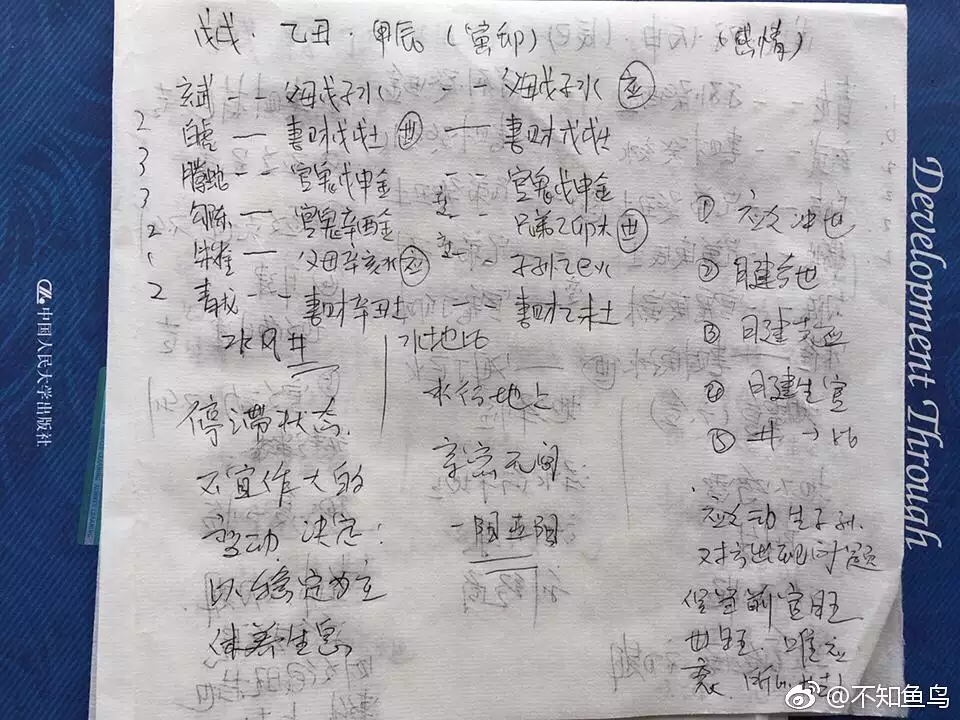 戊戌·乙丑·甲辰(寅卯) (感情)
玄武 -- 父母戊子水 -- 父母戊子水 应
2 白虎 — 妻财戊戌土 世 — 妻财戊戌土
3 腾蛇 -- 官鬼戊申金 -- 官鬼戊申金
3 勾陈 — 官鬼辛酉金 -- 兄弟乙卯木 世
2 朱雀 — 父母辛亥水 应 -- 子孙乙巳火
1
2 青龙 -- 妻财辛丑土 -- 妻财乙未土
水风井
水地比
停滞状态.
不宜作大的
变动 决定:
以稳定为主
休养生息
水行地上
亲密无间
一阳五阴
① 应爻冲世
② 月建
③ 月建克应
④ 日建生官
⑤ 井→比
应爻动生子孙.
对方出现问题
官旺
世旺. 唯应
衰.
中国人民大学出版社
Development Through
@不知鱼鸟